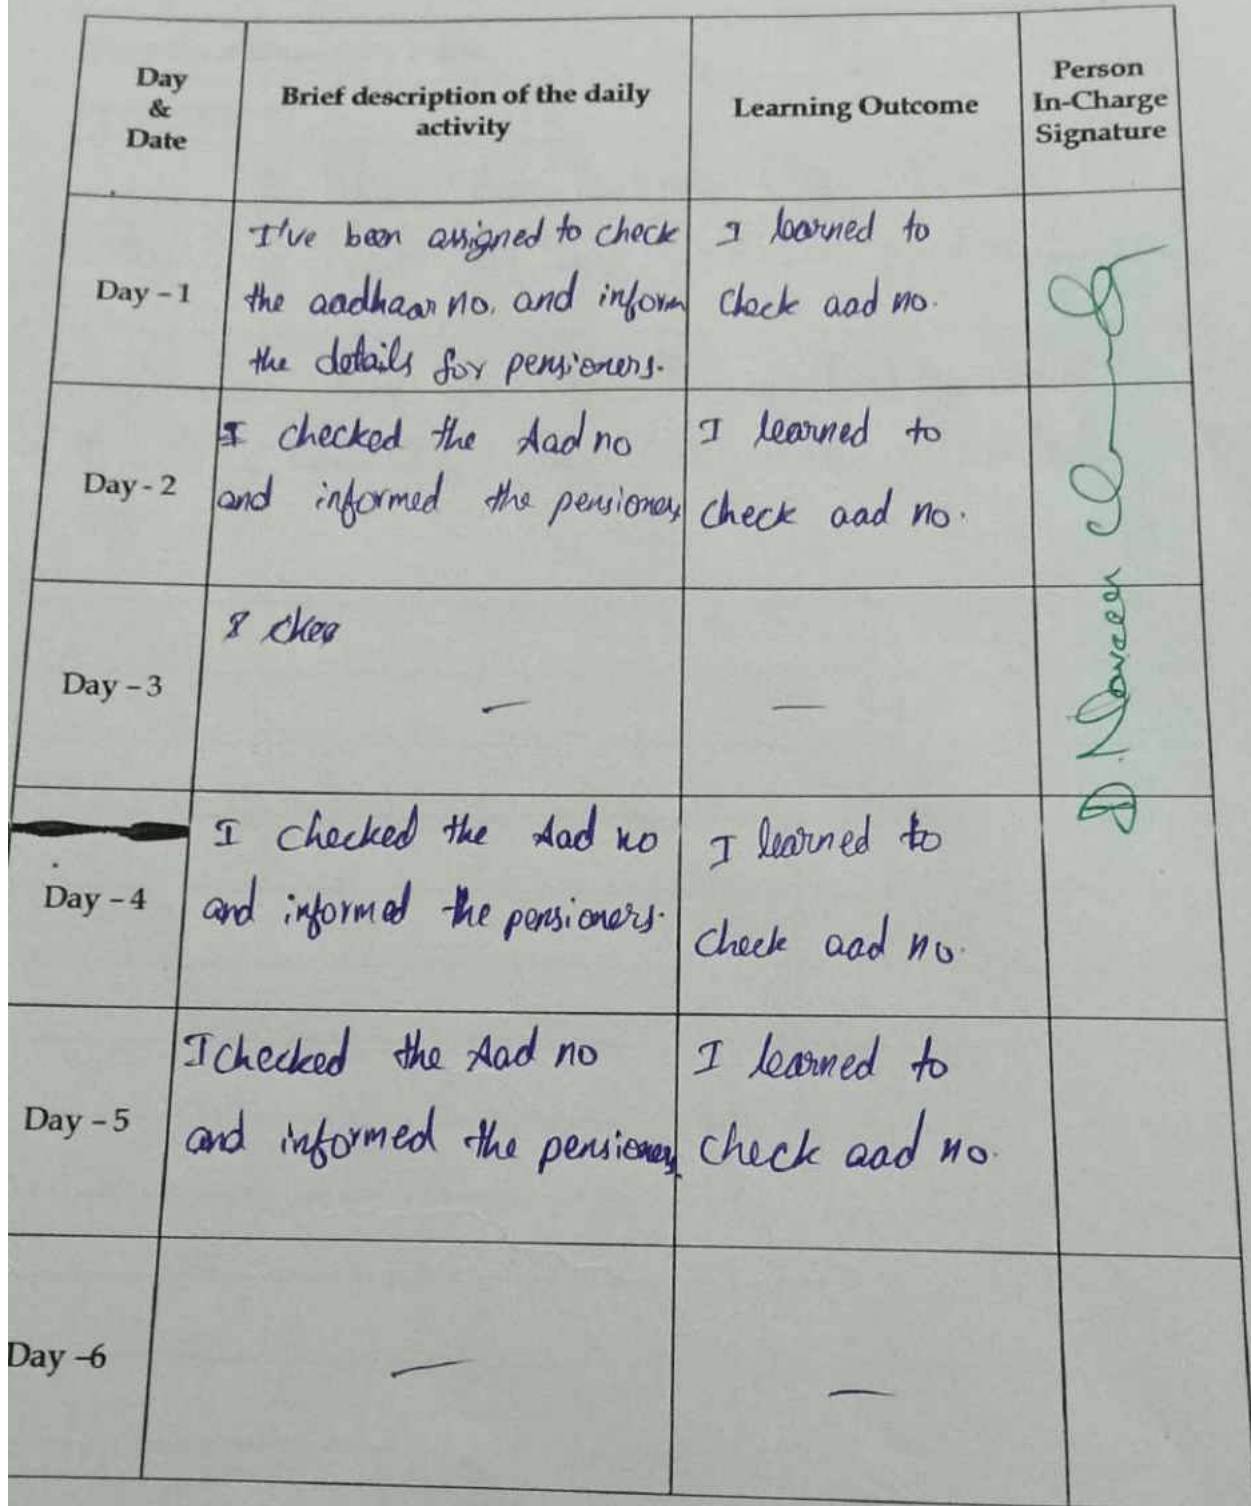 Day
&
Date
Brief description of the daily
activity
Learning Outcome
Person
In-Charge
Signature
Day – 1
I've been assigned to check
the aadhaar no. and inform
the details for pensioners.
I learned to
check aad no.
Day - 2
I checked the Aad no
and informed the pensioners
I learned to
check aad no.
Day – 3
—
—
Day – 4
I checked the Aad no
and informed the pensioners.
I learned to
check aad no.
Day – 5
I checked the Aad no
and informed the pensioners
I learned to
check aad no.
Day –6
—
—
D. Naveen